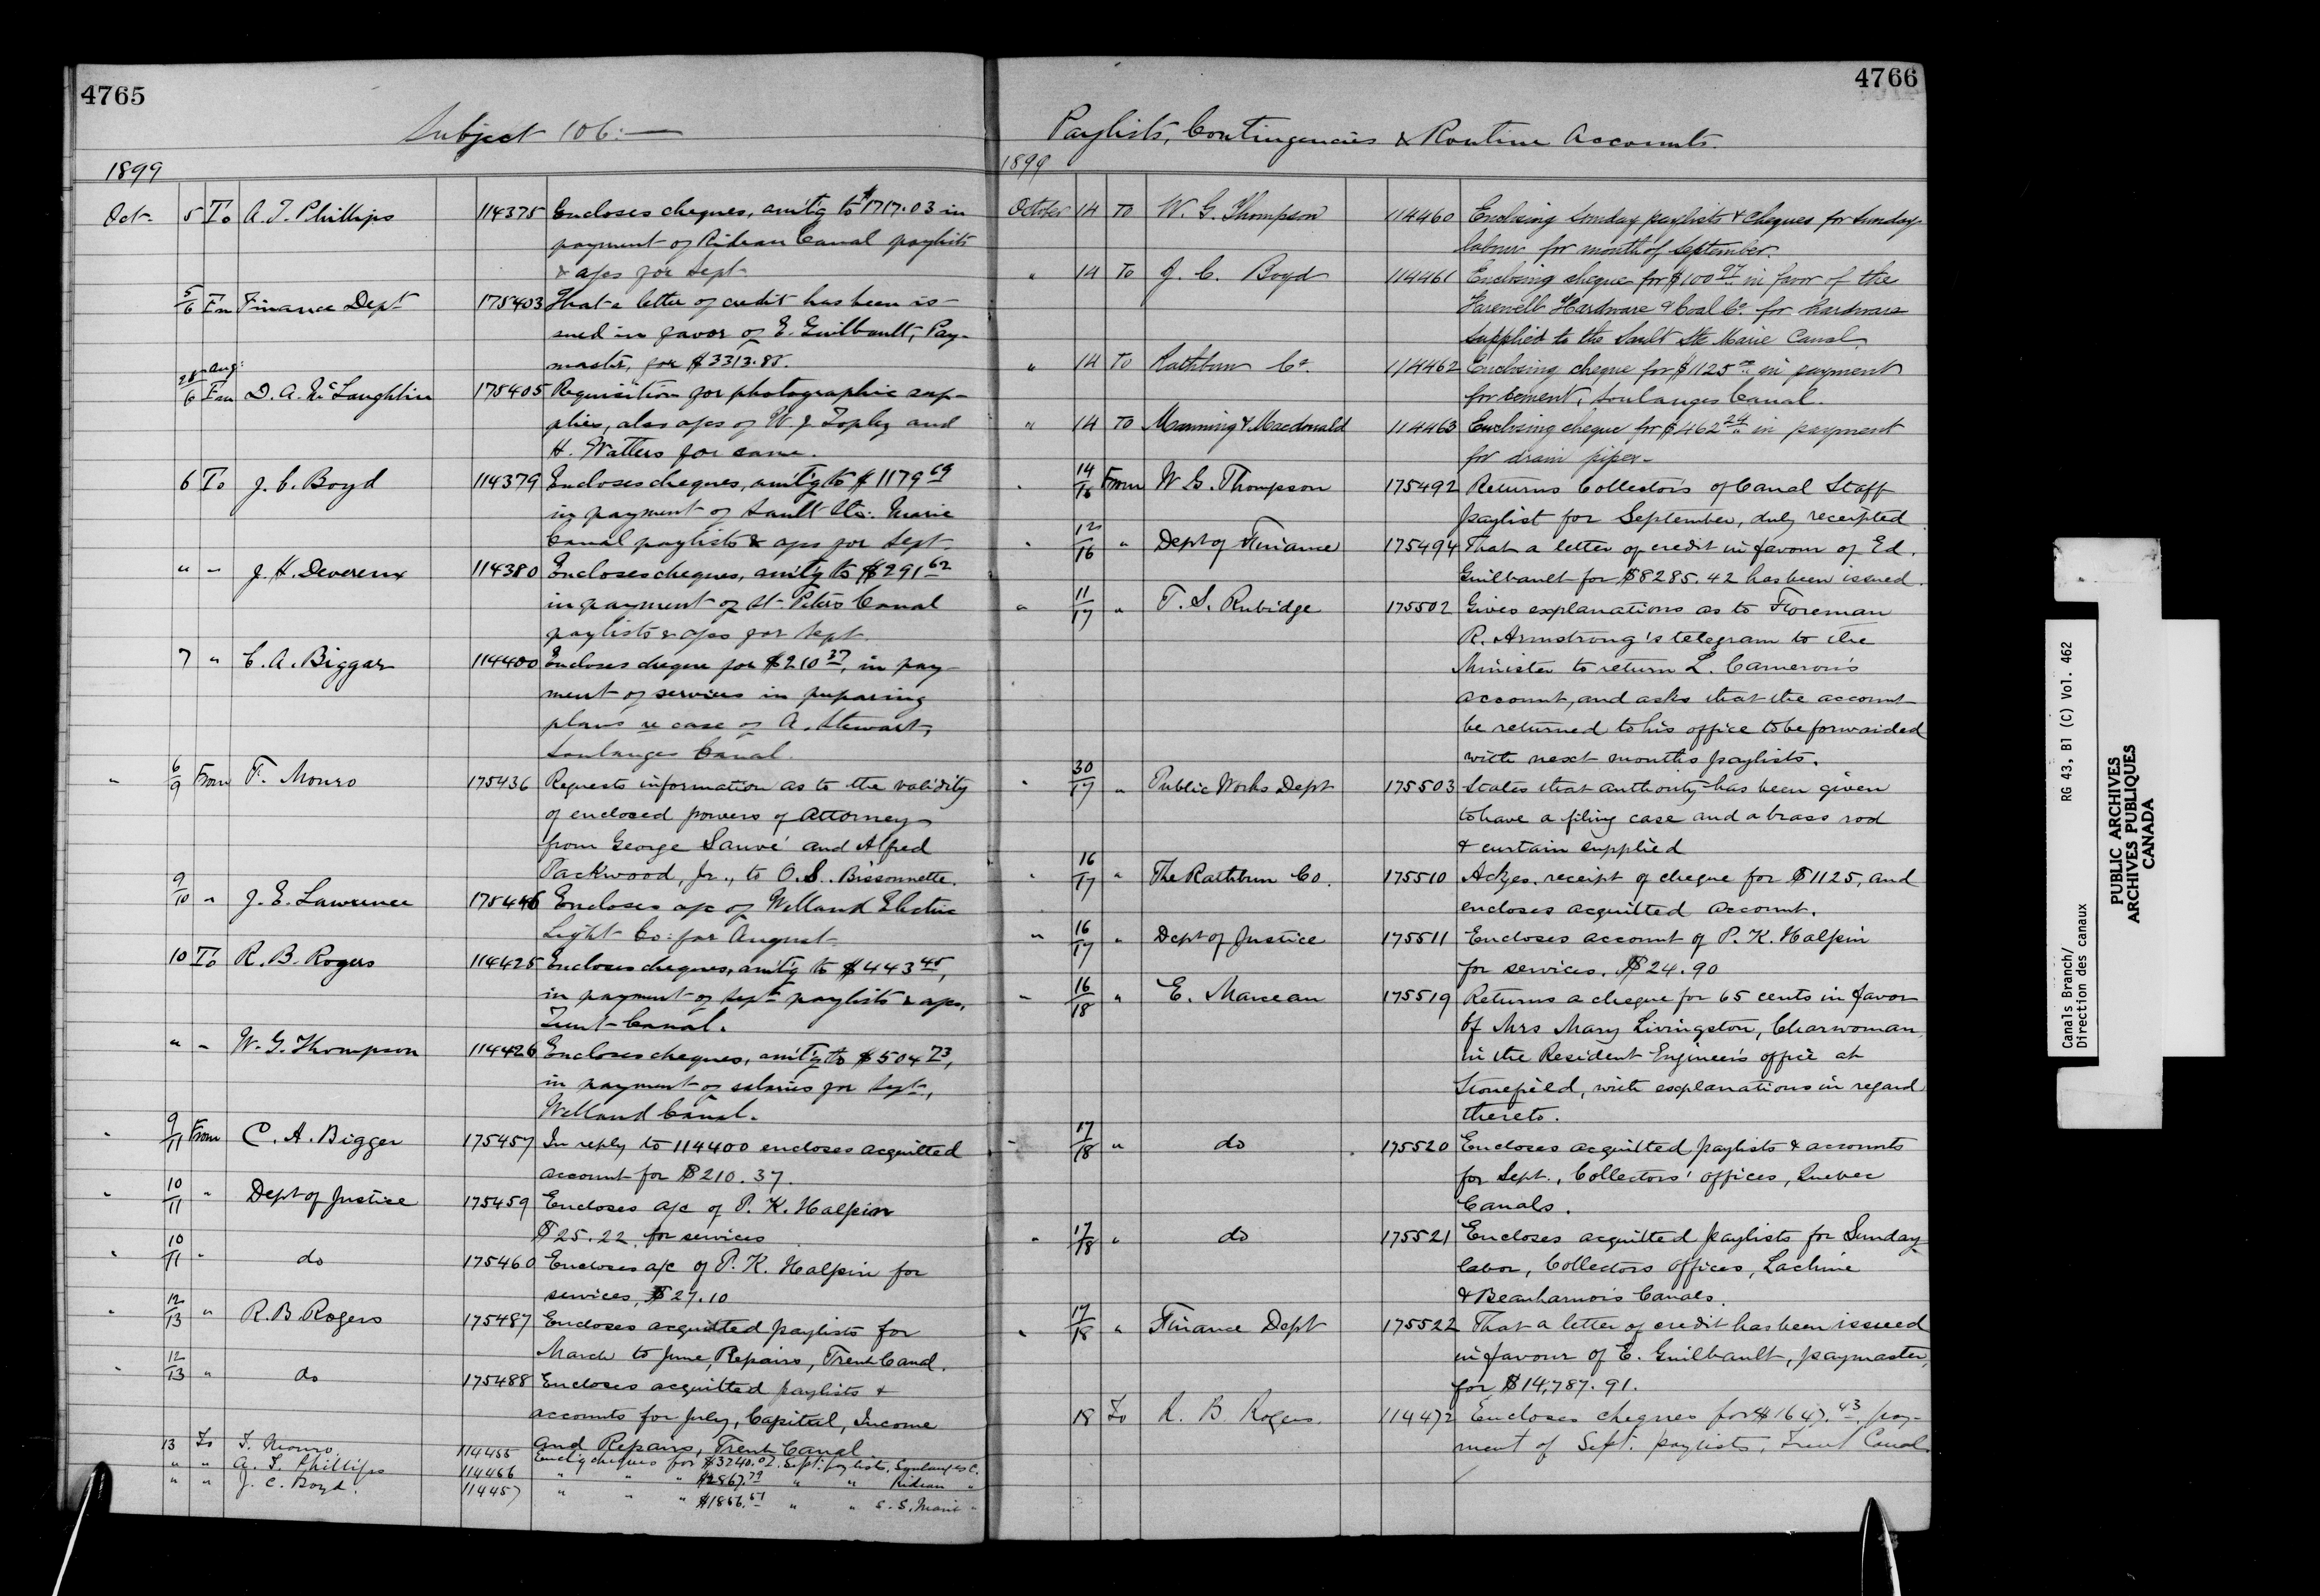 4765
Subject 106:—
1899
Oct. 5 To A. T. Phillips 114375 Encloses cheques, amt'g to $1717.03 in
payment of Rideau Canal paylists
& a/cs for Sept.
5/6 Fm Finance Dept 175403 That a letter of credit has been is-
sued in favor of E. Guilbault, Pay-
master, for $3313.85.
28 Aug:/6 Fm D. A. McLaughlin 175405 Requisition for photographic sup-
plies, also a/cs of W. J. Topley and
H. Watters for same.
6 To J. C. Boyd 114379 Encloses cheques, amt'g to $1179 69
in payment of Sault Ste: Marie
Canal paylists & a/cs for Sept.
" " J. H. Devereux 114380 Encloses cheques, amt'g to $291 62
in payment of St. Peters Canal
paylists & a/cs for Sept.
7 " C. A. Biggar 114400 Encloses cheque for $210 37, in pay-
ment of services in preparing
plans re case of A. Stewart,
Soulanges Canal.
" 6/9 From T. Monro 175436 Requests information as to the validity
of enclosed powers of Attorney
from George Sauvé and Alfred
Packwood, Jr., to O. S. Bissonnette.
9/10 " J. E. Lawrence 175446 Encloses a/c of Welland Electric
Light Co: for August.
10 To R. B. Rogers 114425 Encloses cheques, amt'g to $443 45,
in payment of Sept paylists & a/cs,
Trent Canal.
" " W. G. Thompson 114426 Encloses cheques, amt'g to $504 73,
in payment of salaries for Sept.,
Welland Canal.
" 9/11 From C. A. Bigger 175457 In reply to 114400 encloses acquitted
account for $210.37.
" 10/11 " Dept of Justice 175459 Encloses a/c of P. K. Halpin
$25.22 for services
" 10/11 " do 175460 Encloses a/c of P. K. Halpin for
services, $27.10
" 12/13 " R. B. Rogers 175487 Encloses acquitted paylists for
March to June, Repairs, Trent Canal.
" 12/13 " do 175488 Encloses acquitted paylists &
accounts for July, Capital, Income
and Repairs, Trent Canal
13 To T. Monro 114455 Encl'g cheques for $3240.07. Sept: paylists, Soulanges C.
" " A. T. Phillips 114456 " " " $2867.79 " " Rideau "
" " J. C. Boyd. 114457 " " " $1856.51 " " S. S. Marie "
4766
Paylists, Contingencies & Routine Accounts.
1899
October 14 To W. G. Thompson 114460 Enclosing Sunday paylists & cheques for Sunday
labour for month of September.
" 14 To J. C. Boyd 114461 Enclosing cheque for $100 97 in favor of the
Farewell Hardware & Coal Co. for hardware
supplied to the Sault Ste Marie Canal.
" 14 To Rathbun Co. 114462 Enclosing cheque for $1125 00 in payment
for cement, Soulanges Canal.
" 14 To Manning & Macdonald 114463 Enclosing cheque for $462 24 in payment
for drain pipes.
" 14/16 From W. G. Thompson 175492 Returns Collectors of Canal Staff
paylist for September, duly receipted
" 12/16 " Dept of Finance 175494 That a letter of credit in favour of Ed.
Guilbault for $8285.42 has been issued.
" 11/17 " T. S. Rubidge 175502 Gives explanations as to Foreman
R. Armstrong's telegram to the
Minister to return L. Cameron's
account, and asks that the account
be returned to his office to be forwarded
with next months paylists.
" 30/17 " Public Works Dept 175503 States that authority has been given
to have a filing case and a brass rod
& curtain supplied
" 16/17 " The Rathbun Co. 175510 Ackges. receipt of cheque for $1125, and
encloses acquitted account.
" 16/17 " Dept of Justice 175511 Encloses account of P. K. Halpin
for services. $24.90
" 16/18 " E. Marceau 175519 Returns a cheque for 65 cents in favor
of Mrs Mary Livingston, Charwoman
in the Resident Engineer's office at
Stonefield, with explanations in regard
thereto.
" 17/18 " do 175520 Encloses acquitted paylists & accounts
for Sept., Collectors' offices, Quebec
Canals.
" 17/18 " do 175521 Encloses acquitted paylists for Sunday
labor, Collectors offices, Lachine
& Beauharnois Canals.
" 17/18 " Finance Dept 175522 That a letter of credit has been issued
in favour of E. Guilbault, paymaster,
for $14,787.91.
18 To R. B. Rogers. 114472 Encloses cheques for $1647.43, pay-
ment of Sept. paylists, Trent Canal.
Canals Branch/ RG 43, B1 (C) Vol. 462
Direction des canaux
PUBLIC ARCHIVES
ARCHIVES PUBLIQUES
CANADA